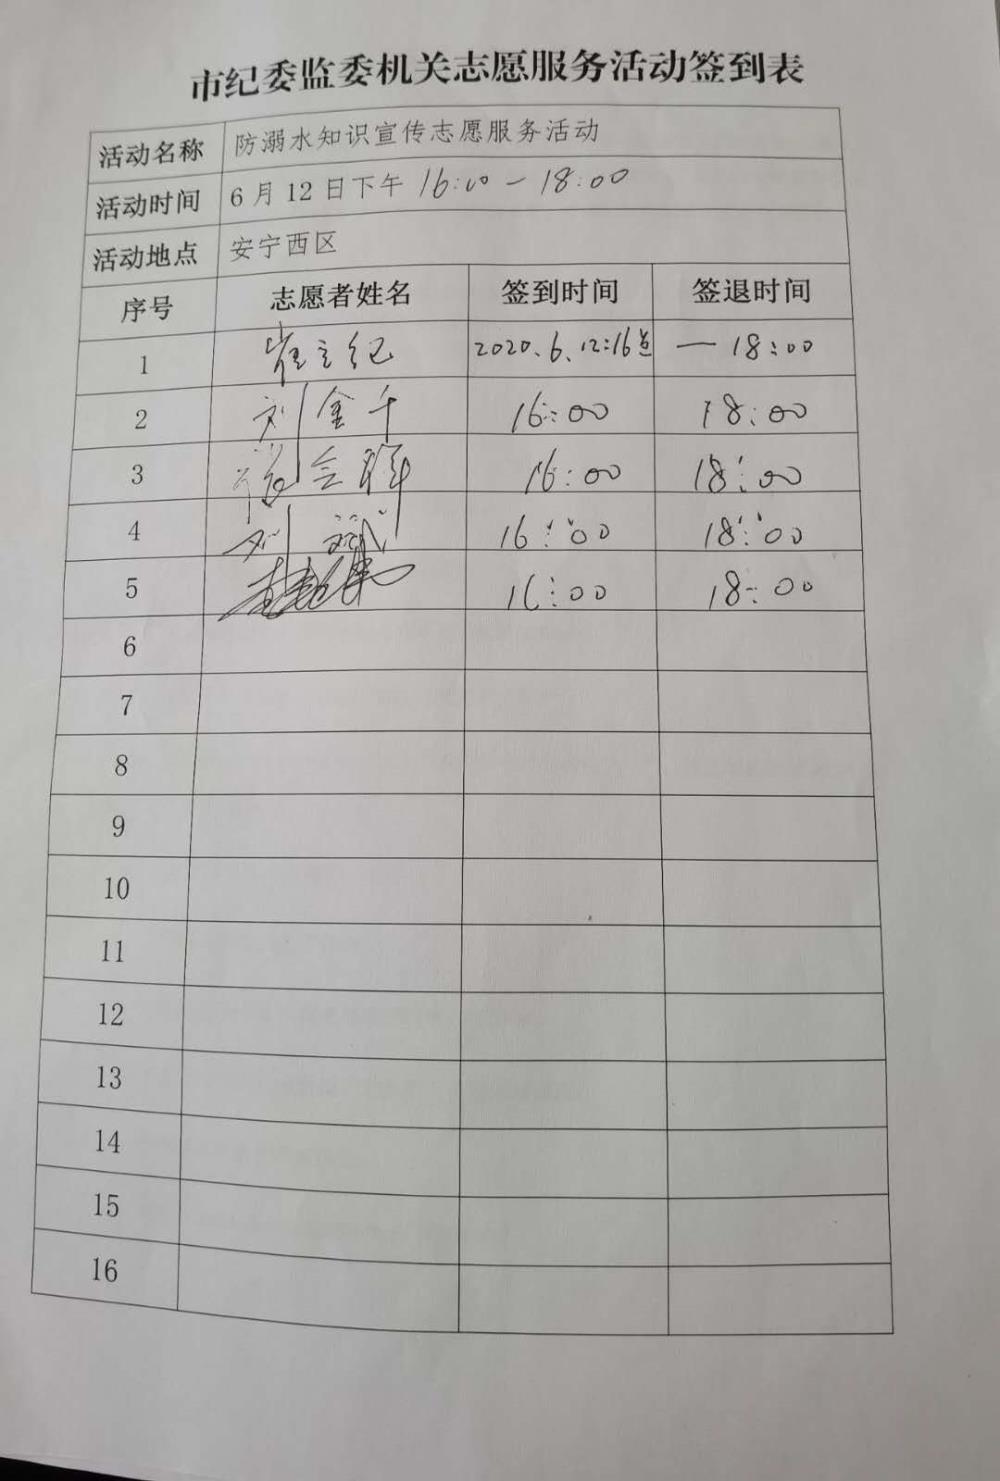 市纪委监委机关志愿服务活动签到表
活动名称 防溺水知识宣传志愿服务活动
活动时间 6月12日下午 16:00 — 18:00
活动地点 安宁西区
序号 志愿者姓名 签到时间 签退时间
1 崔立纪 2020.6.12:16点 — 18:00
2 刘金千 16:00 18:00
3 16:00 18:00
4 刘斌 16:00 18:00
5 16:00 18:00
6
7
8
9
10
11
12
13
14
15
16